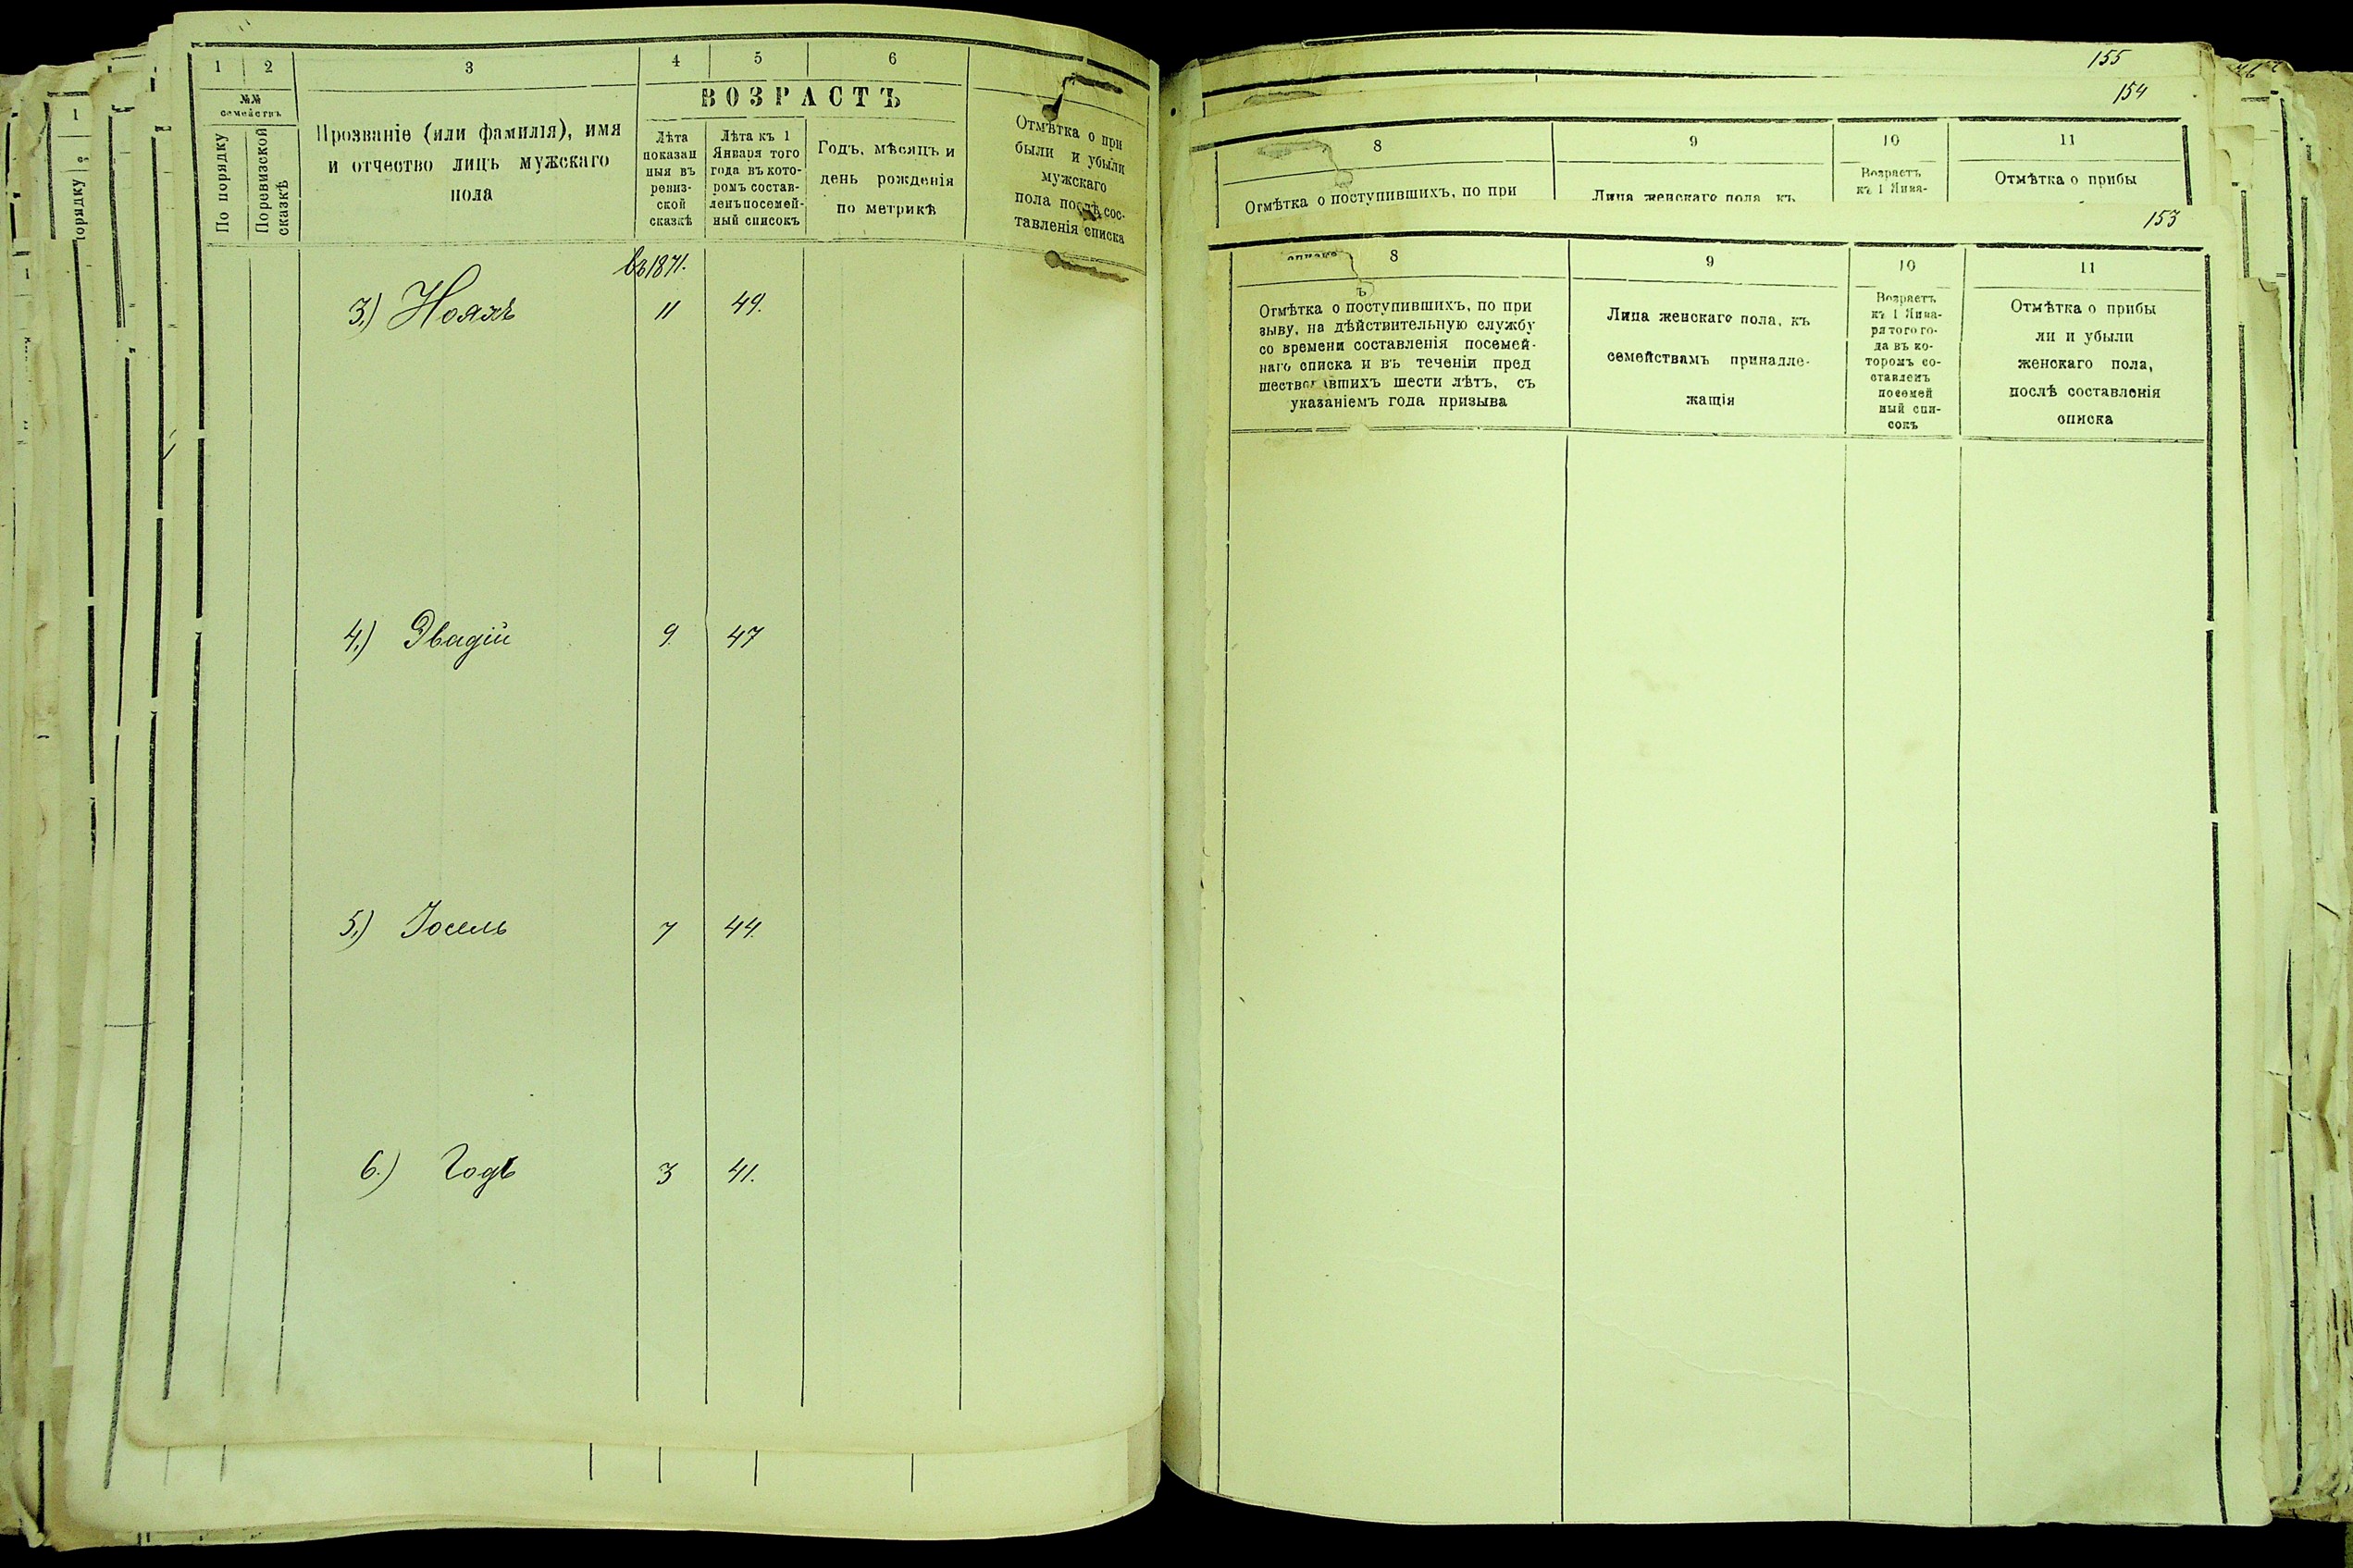 1 2 3 4 5 6
№№ семействъ
По порядку
По ревизской сказкѣ
Прозваніе (или фамилія), имя
и отчество лицъ мужскаго
пола
ВОЗРАСТЪ
Лѣта
показан
ныя въ
ревиз-
ской
сказкѣ
Лѣта къ 1
Января того
года въ кото-
ромъ состав-
ленъ посемей-
ный списокъ
Годъ, мѣсяцъ и
день рожденія
по метрикѣ
Отмѣтка о при
были и убыли
мужскаго
пола послѣ сос-
тавленія списка
въ 1871.
3.) Ноахъ 11 49.
4.) Эвадій 9. 47
5.) Іосель 7 44.
6.) Годъ 3 41.
1
порядку
155
154
8 9 10 11
Отмѣтка о поступившихъ, по при
Лица женскаго пола, къ
Возрастъ
къ 1 Янва-
Отмѣтка о прибы
153
8 9 10 11
Отмѣтка о поступившихъ, по при
зыву, на дѣйствительную службу
со времени составленія посемей-
наго списка и въ теченіи пред
шествовавшихъ шести лѣтъ, съ
указаніемъ года призыва
Лица женскаго пола, къ
семействамъ принадле-
жащія
Возрастъ
къ 1 Янва-
ря того го-
да въ ко-
торомъ со-
ставленъ
посемей
ный спи-
сокъ
Отмѣтка о прибы
ли и убыли
женскаго пола,
послѣ составленія
списка